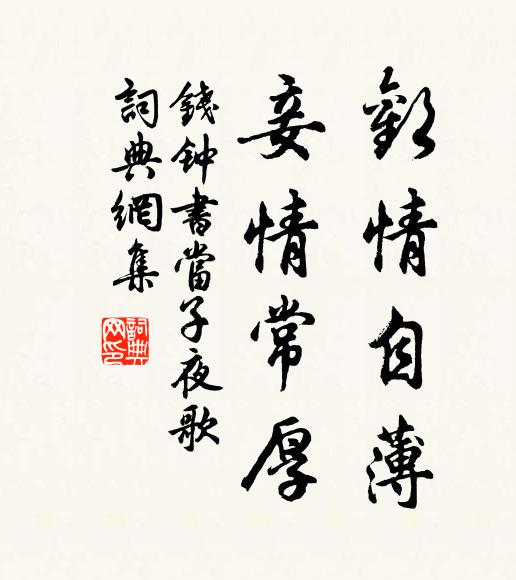 歡情自薄
妾情常厚
錢钟書當子夜歌
詞典網集
詞典
网印